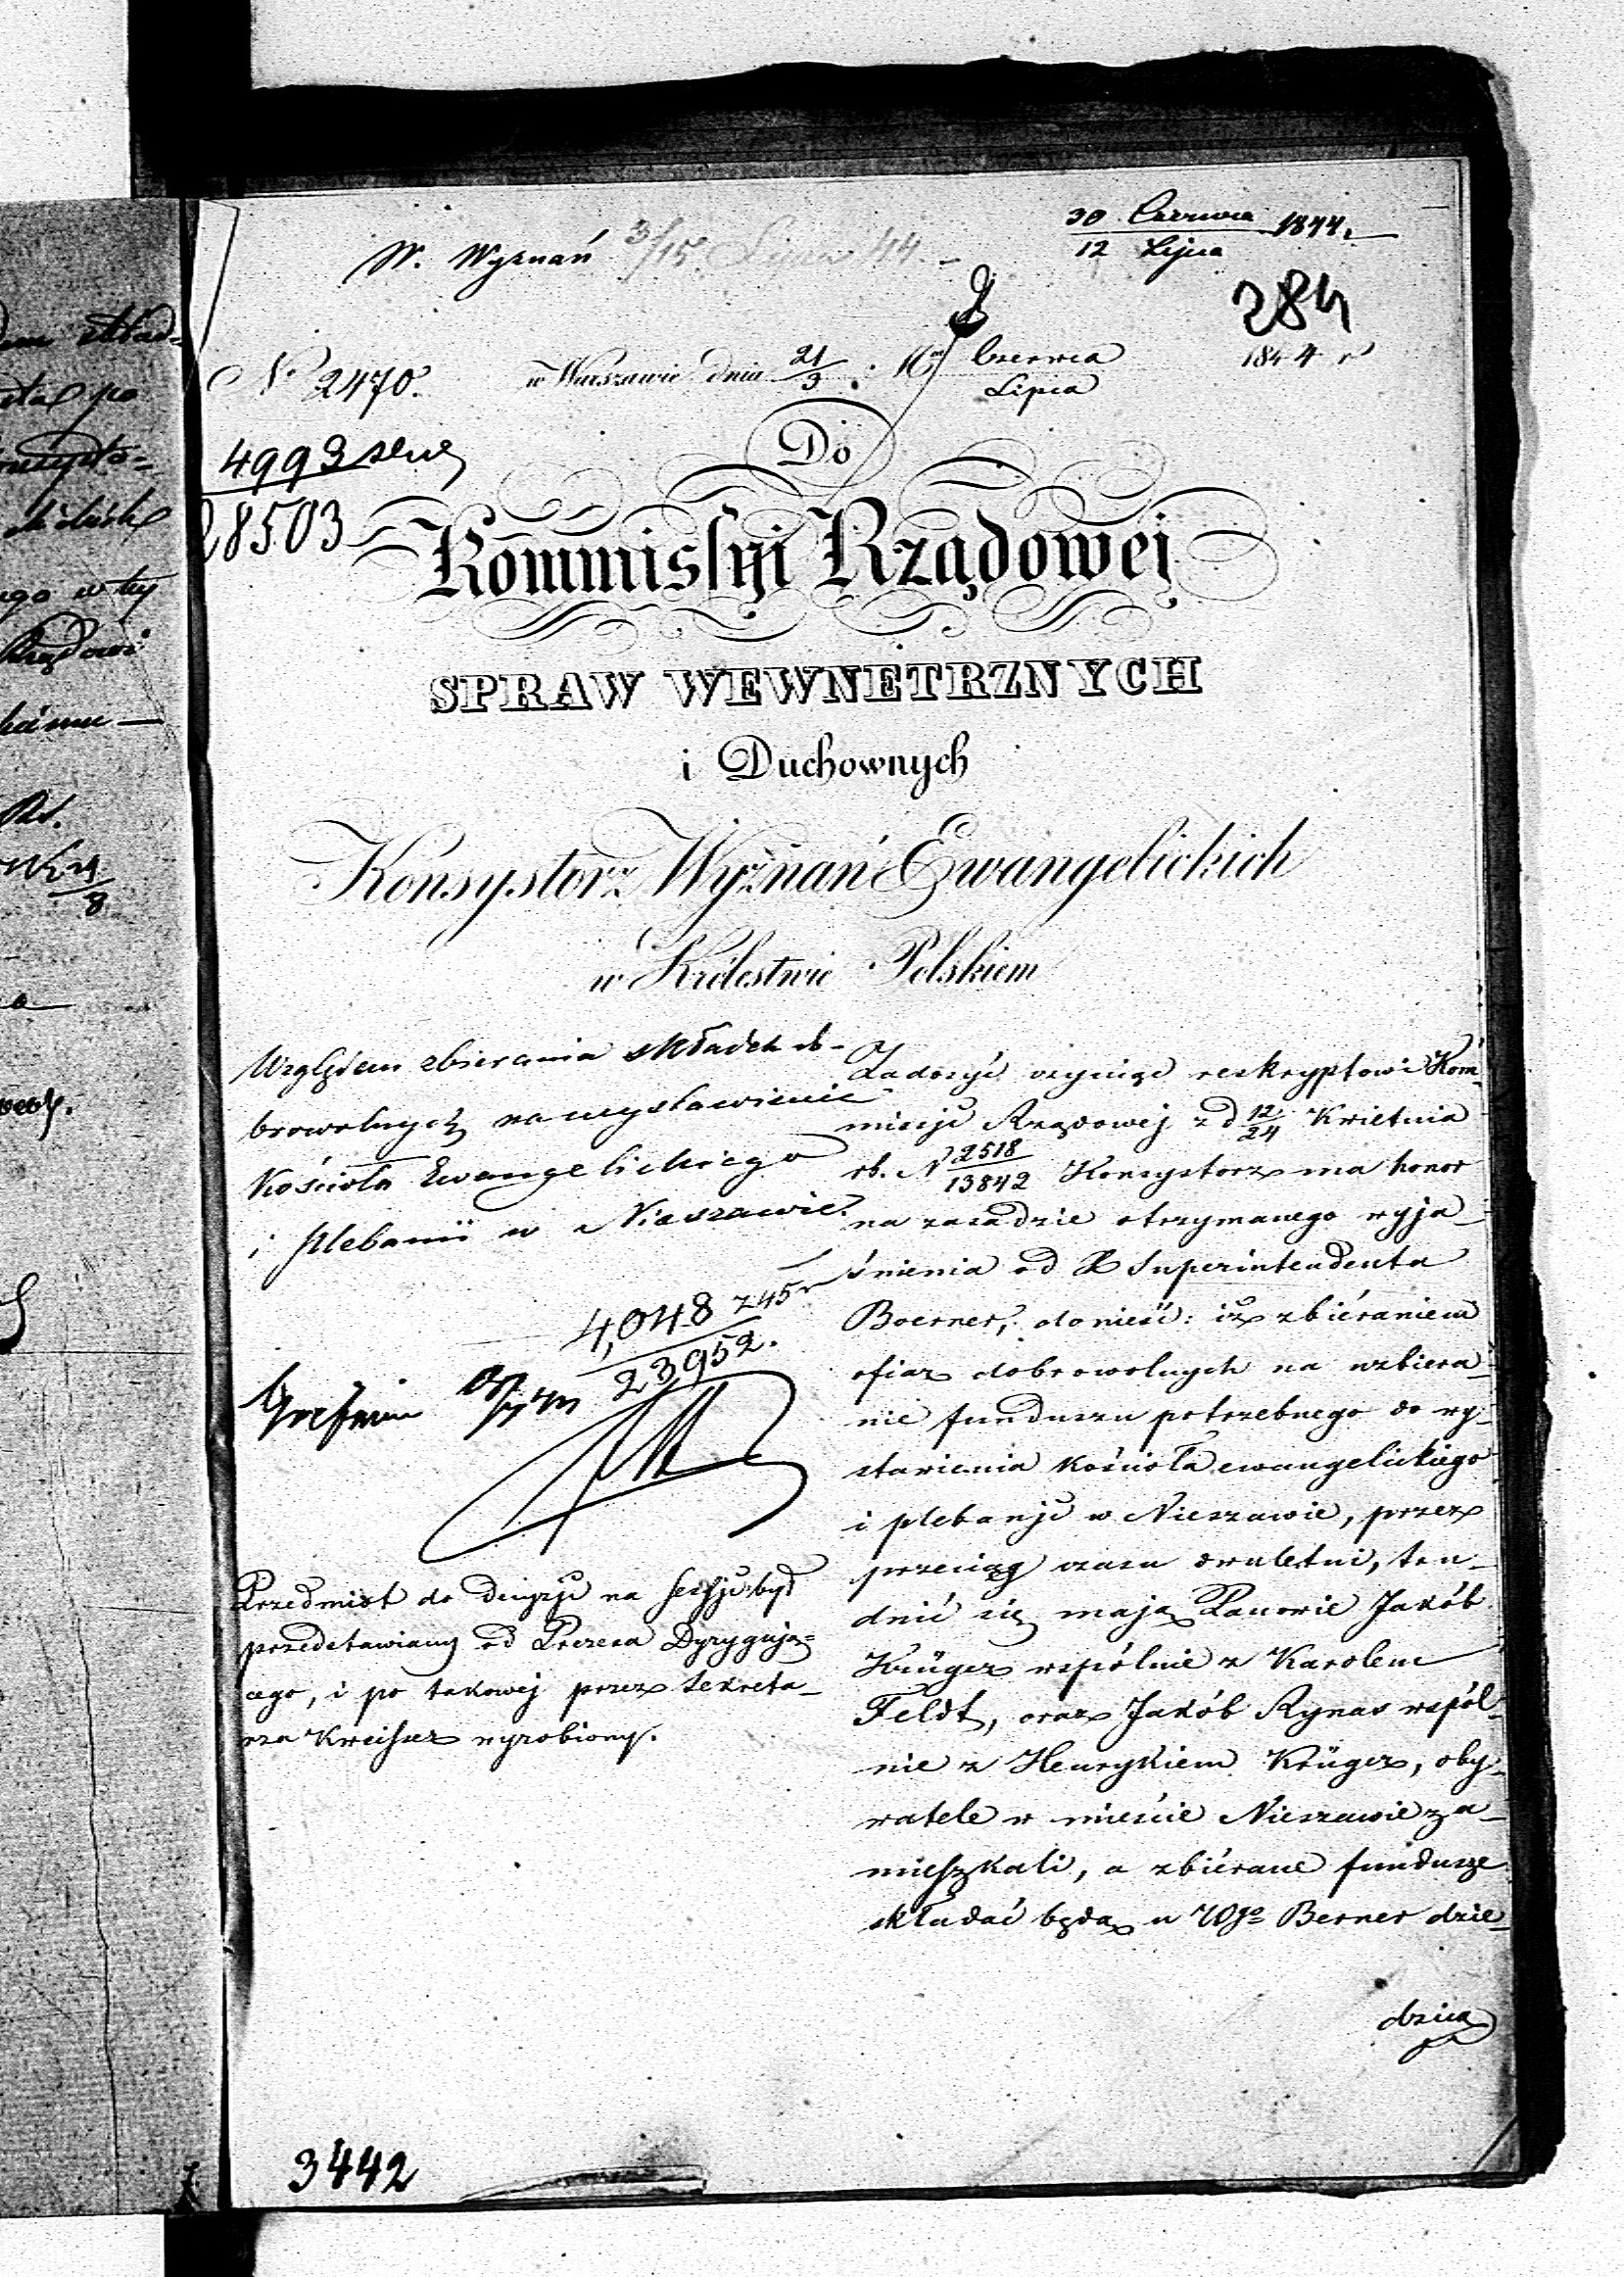 30 Czerwca 1844.
12 Lipca
W. Wyznań 3/15 Lipca 44.
284
No 2470. w Warszawie dnia 21/3 Czerwca 1844 r
Lipca
4993
28503
Do
Kommissyi Rządowej
SPRAW WEWNETRZNYCH
i Duchownych
Konsystorz Wyznań Ewangelickich
w Królestwie Polskiem
Względem zbierania składek do-
browolnych na wystawienie
Kościoła Ewangelickiego
i plebanii w Nieszawie.
4,048 z 45 r
23952.
Przedmiot do decyzji na sessji był
przedstawiany od Prezesa Dyrygują=
cego, i po takowej przez Sekreta-
rza Kreisser wyrobiony.
Zadosyć czyniąc reskryptowi Kom-
missji Rządowej z d 12/24 Kwietnia
rb. N 2518/13842 Konsystorz ma honor
na zasadzie otrzymanego wyja-
śnienia od X Superintendenta
Boerner, donieść: iż zbiéraniem
ofiar dobrowolnych na uzbiera-
nie funduszu potrzebnego do wy-
stawienia kościoła ewangelickiego
i plebanji w Nieszawie, przez
przeciąg czasu dwuletni, tru-
dnić się mają Panowie Jakób
Krüger wspólnie z Karolem
Feldt, oraz Jakób Rynas wspól-
nie z Henrykiem Krüger, oby-
watele w mieście Nieszawie za-
mieszkali, a zbiérane fundusze
składać będą u Wgo Berner dzie-
dzica
3442